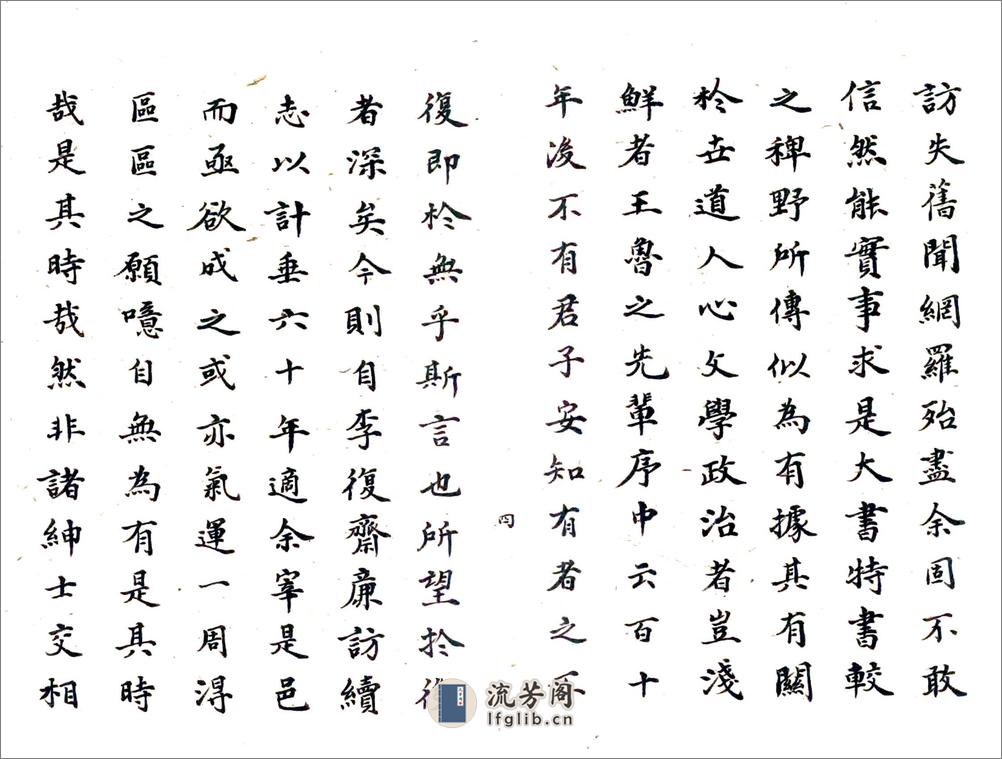 訪失舊聞網羅殆盡余固不敢
信然能實事求是大書特書較
之稗野所傳似為有據其有關
於世道人心文學政治者豈淺
鮮者王魯之先輩序中云百十
年後不有君子安知有者之不
四
復即於無乎斯言也所望於後
者深矣今則自李復齋廉訪續
志以計垂六十年適余宰是邑
而亟欲成之或亦氣運一周淂
區區之願噫自無為有是其時
哉是其時哉然非諸紳士交相
流芳阁
lfglib.cn